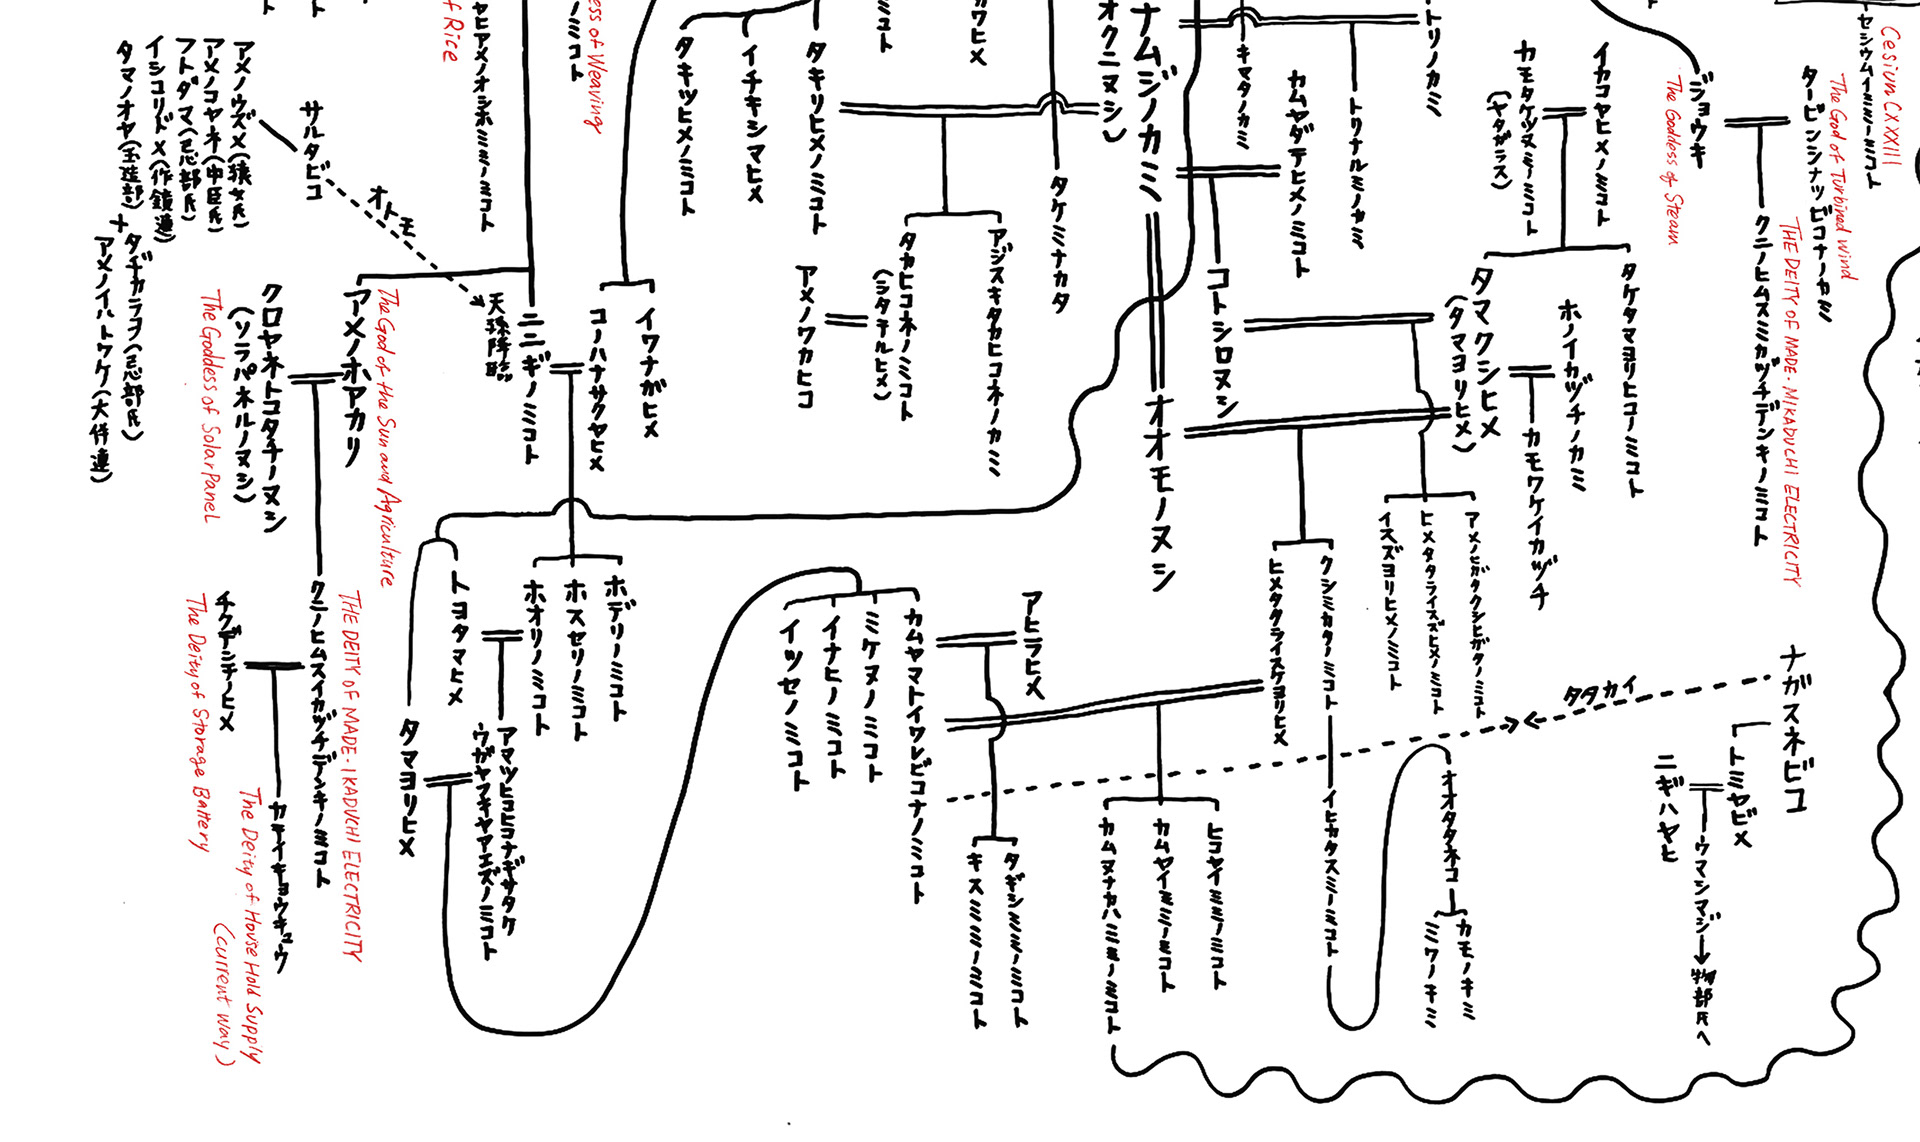 Cesium CXXXIII
セシウムイミーミコト
The God of Turbined Wind
タービンシナツビコナノカミ
THE DEITY OF MADE-MIKADUCHI ELECTRICITY
クニノヒムスミカヅチデンキノミコト
ジョウキ
The Goddess of Steam
イカコヤヒメノミコト
カモタケツヌミノミコト
(ヤタガラス)
タケタマヨリヒコノミコト
タマクシヒメ
(タマヨリヒメ)
ホノイカヅチノカミ
カモワケイカヅチ
トリノカミ
トリナルミノカミ
キマタノカミ
カムヤダテヒメノミコト
コトシロヌシ
ナムジノカミ
オクニヌシ)
オオモノヌシ
カワヒメ
ミコト
タケミナカタ
タキリヒメノミコト
イチキシマヒメ
タキツヒメノミコト
アジスキタカヒコネノカミ
タカヒコネノミコト
(シタテルヒメ)
アメノワカヒコ
ess of Weaving
ノミコト
f Rice
ヤヒアメノオシホミミノミコト
サルタビコ
オトモ
アメノウズメ(猿女氏)
アメノコヤネ(中臣氏)
フトダマ(忌部氏)
イシコリドメ(作鏡連)
タマノオヤ(玉造部)
+
タヂカラヲ(忌部氏)
アメノイハトワケ(大伴連)
イワナガヒメ
コノハナサクヤヒメ
ニニギノミコト
天孫降臨
The God of the Sun and Agriculture
アメノホアカリ
クロヤネトコタチノヌシ
(ソラパネルノヌシ)
The Goddess of Solar Panel
THE DEITY OF MADE-IKADUCHI ELECTRICITY
クニノヒムスイカヅチデンキノミコト
チクデンチノヒメ
The Deity of Storage Battery
カテイキョウキュウ
The Deity of House Hold Supply
(current way)
ホデリノミコト
ホスセリノミコト
ホオリノミコト
トヨタマヒメ
タマヨリヒメ
アマツヒコヒコナギサタケ
ウガヤフキヤアエズノミコト
カムヤマトイワレビコナノミコト
ミケヌノミコト
イナヒノミコト
イツセノミコト
アヒラヒメ
タギシミミノミコト
キスミミノミコト
アメノヒガタクシヒガタノミコト
ヒメタタライスズヒメノミコト
イスズヨリヒメノミコト
クシミカタノミコト
ヒメタタライスケヨリヒメ
ヒコヤイミミノミコト
カムヤイミミノミコト
カムヌナカハミミノミコト
イヒカタスミノミコト
オオタタネコ
カモノキミ
ミワノキミ
ナガスネビコ
タタカイ
トミヤビメ
ニギハヤヒ
ウマシマジ→物部氏へ